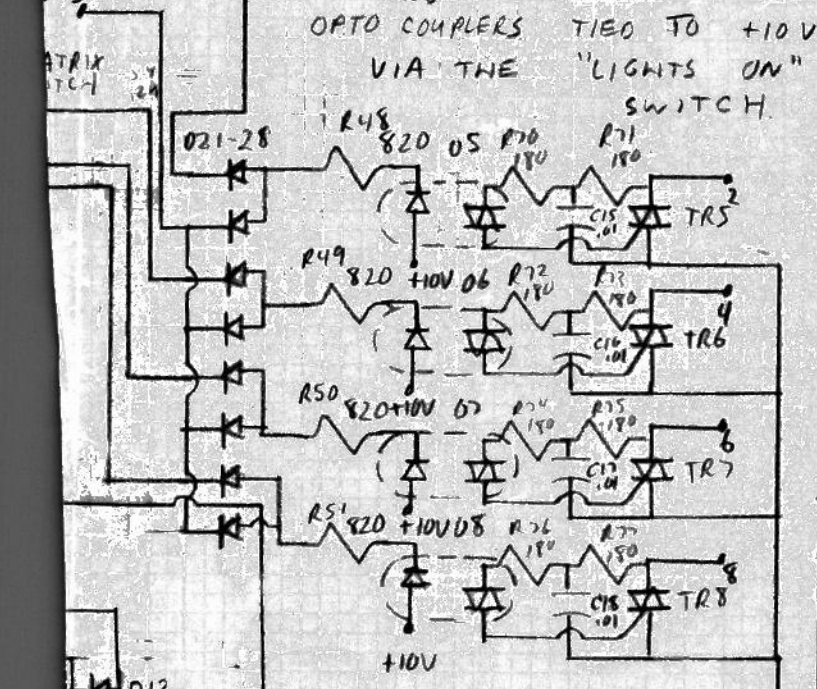 OPTO COUPLERS TIED TO +10V
VIA THE "LIGHTS ON"
SWITCH
ATRIX
ITCH
D21-28
R48
820
O5
R70
180
R71
180
C15
.01
TR5
2
R49
820
+10V
O6
R72
180
R73
180
C16
.01
TR6
4
R50
820
+10V
O7
R74
180
R75
180
C17
.01
TR7
6
R51
820
+10V
O8
R76
180
R77
180
C18
.01
TR8
8
+10V